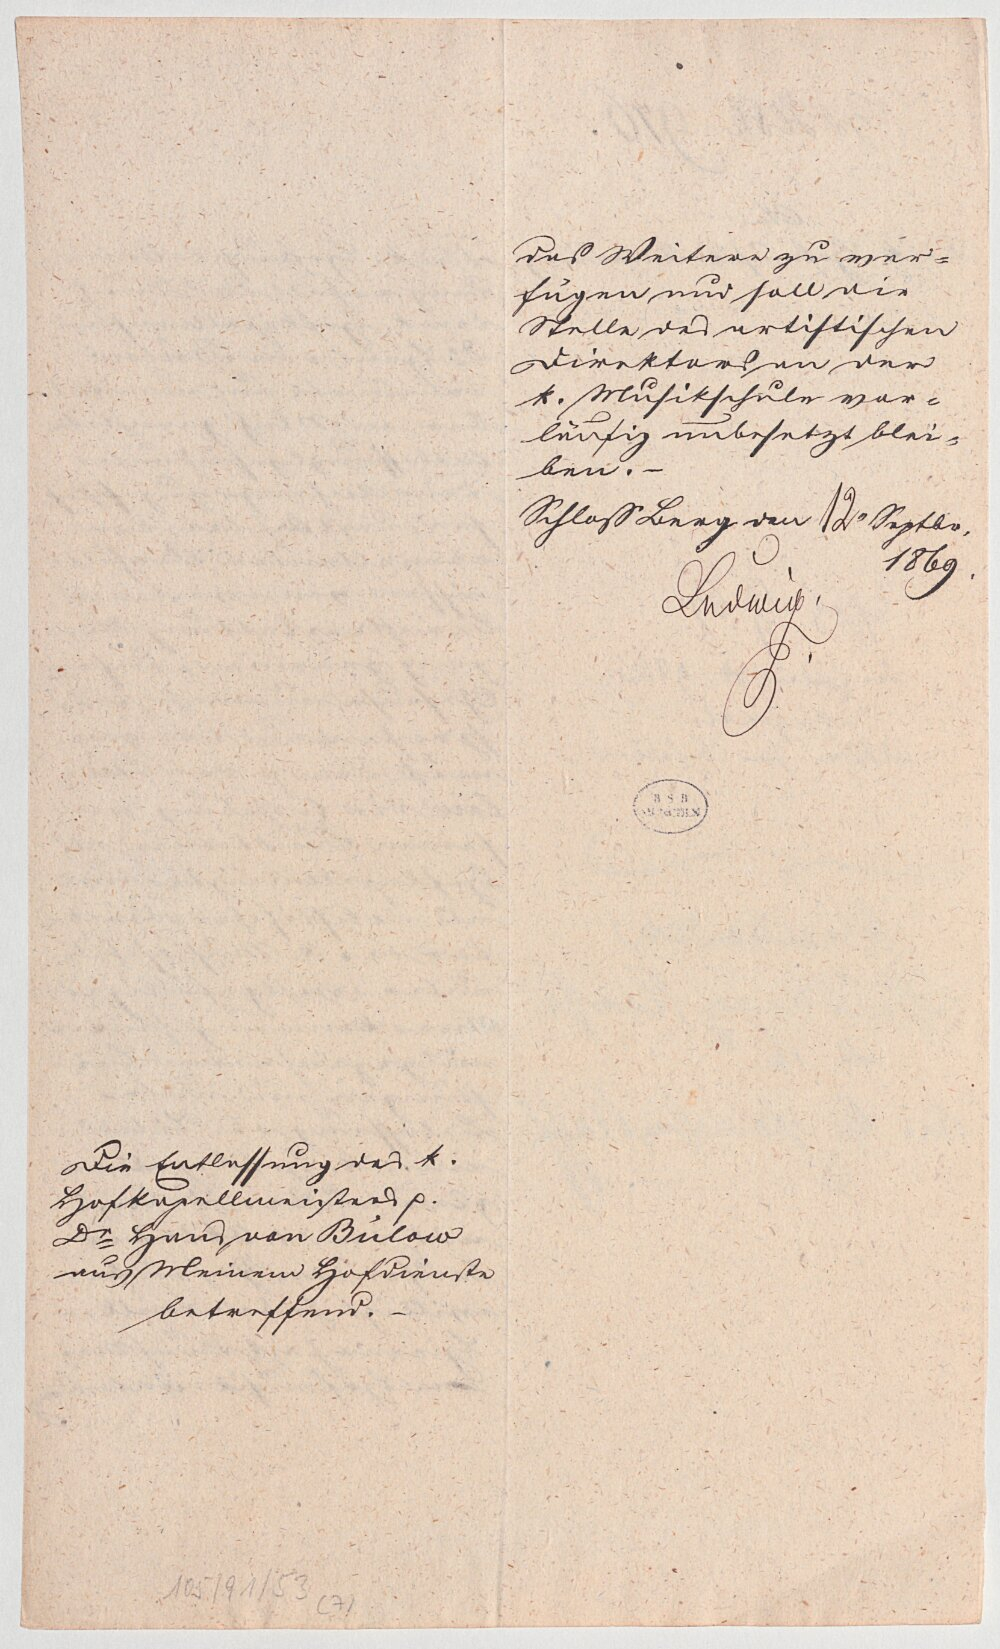 das Weitere zu ver=
fügen und soll die
Stelle des artistischen
Direktors an der
k. Musikschule vor=
läufig unbesetzt blei=
ben. –
Schloß Berg den 12. Septbr.
1869.
Ludwig.
BSB
MÜNCHEN
Die Entlassung des k.
Hofkapellmeisters p.
Dr. Hans von Bülow
aus Meinem Hofdienste
betreffend. –
105/91/53
(7)